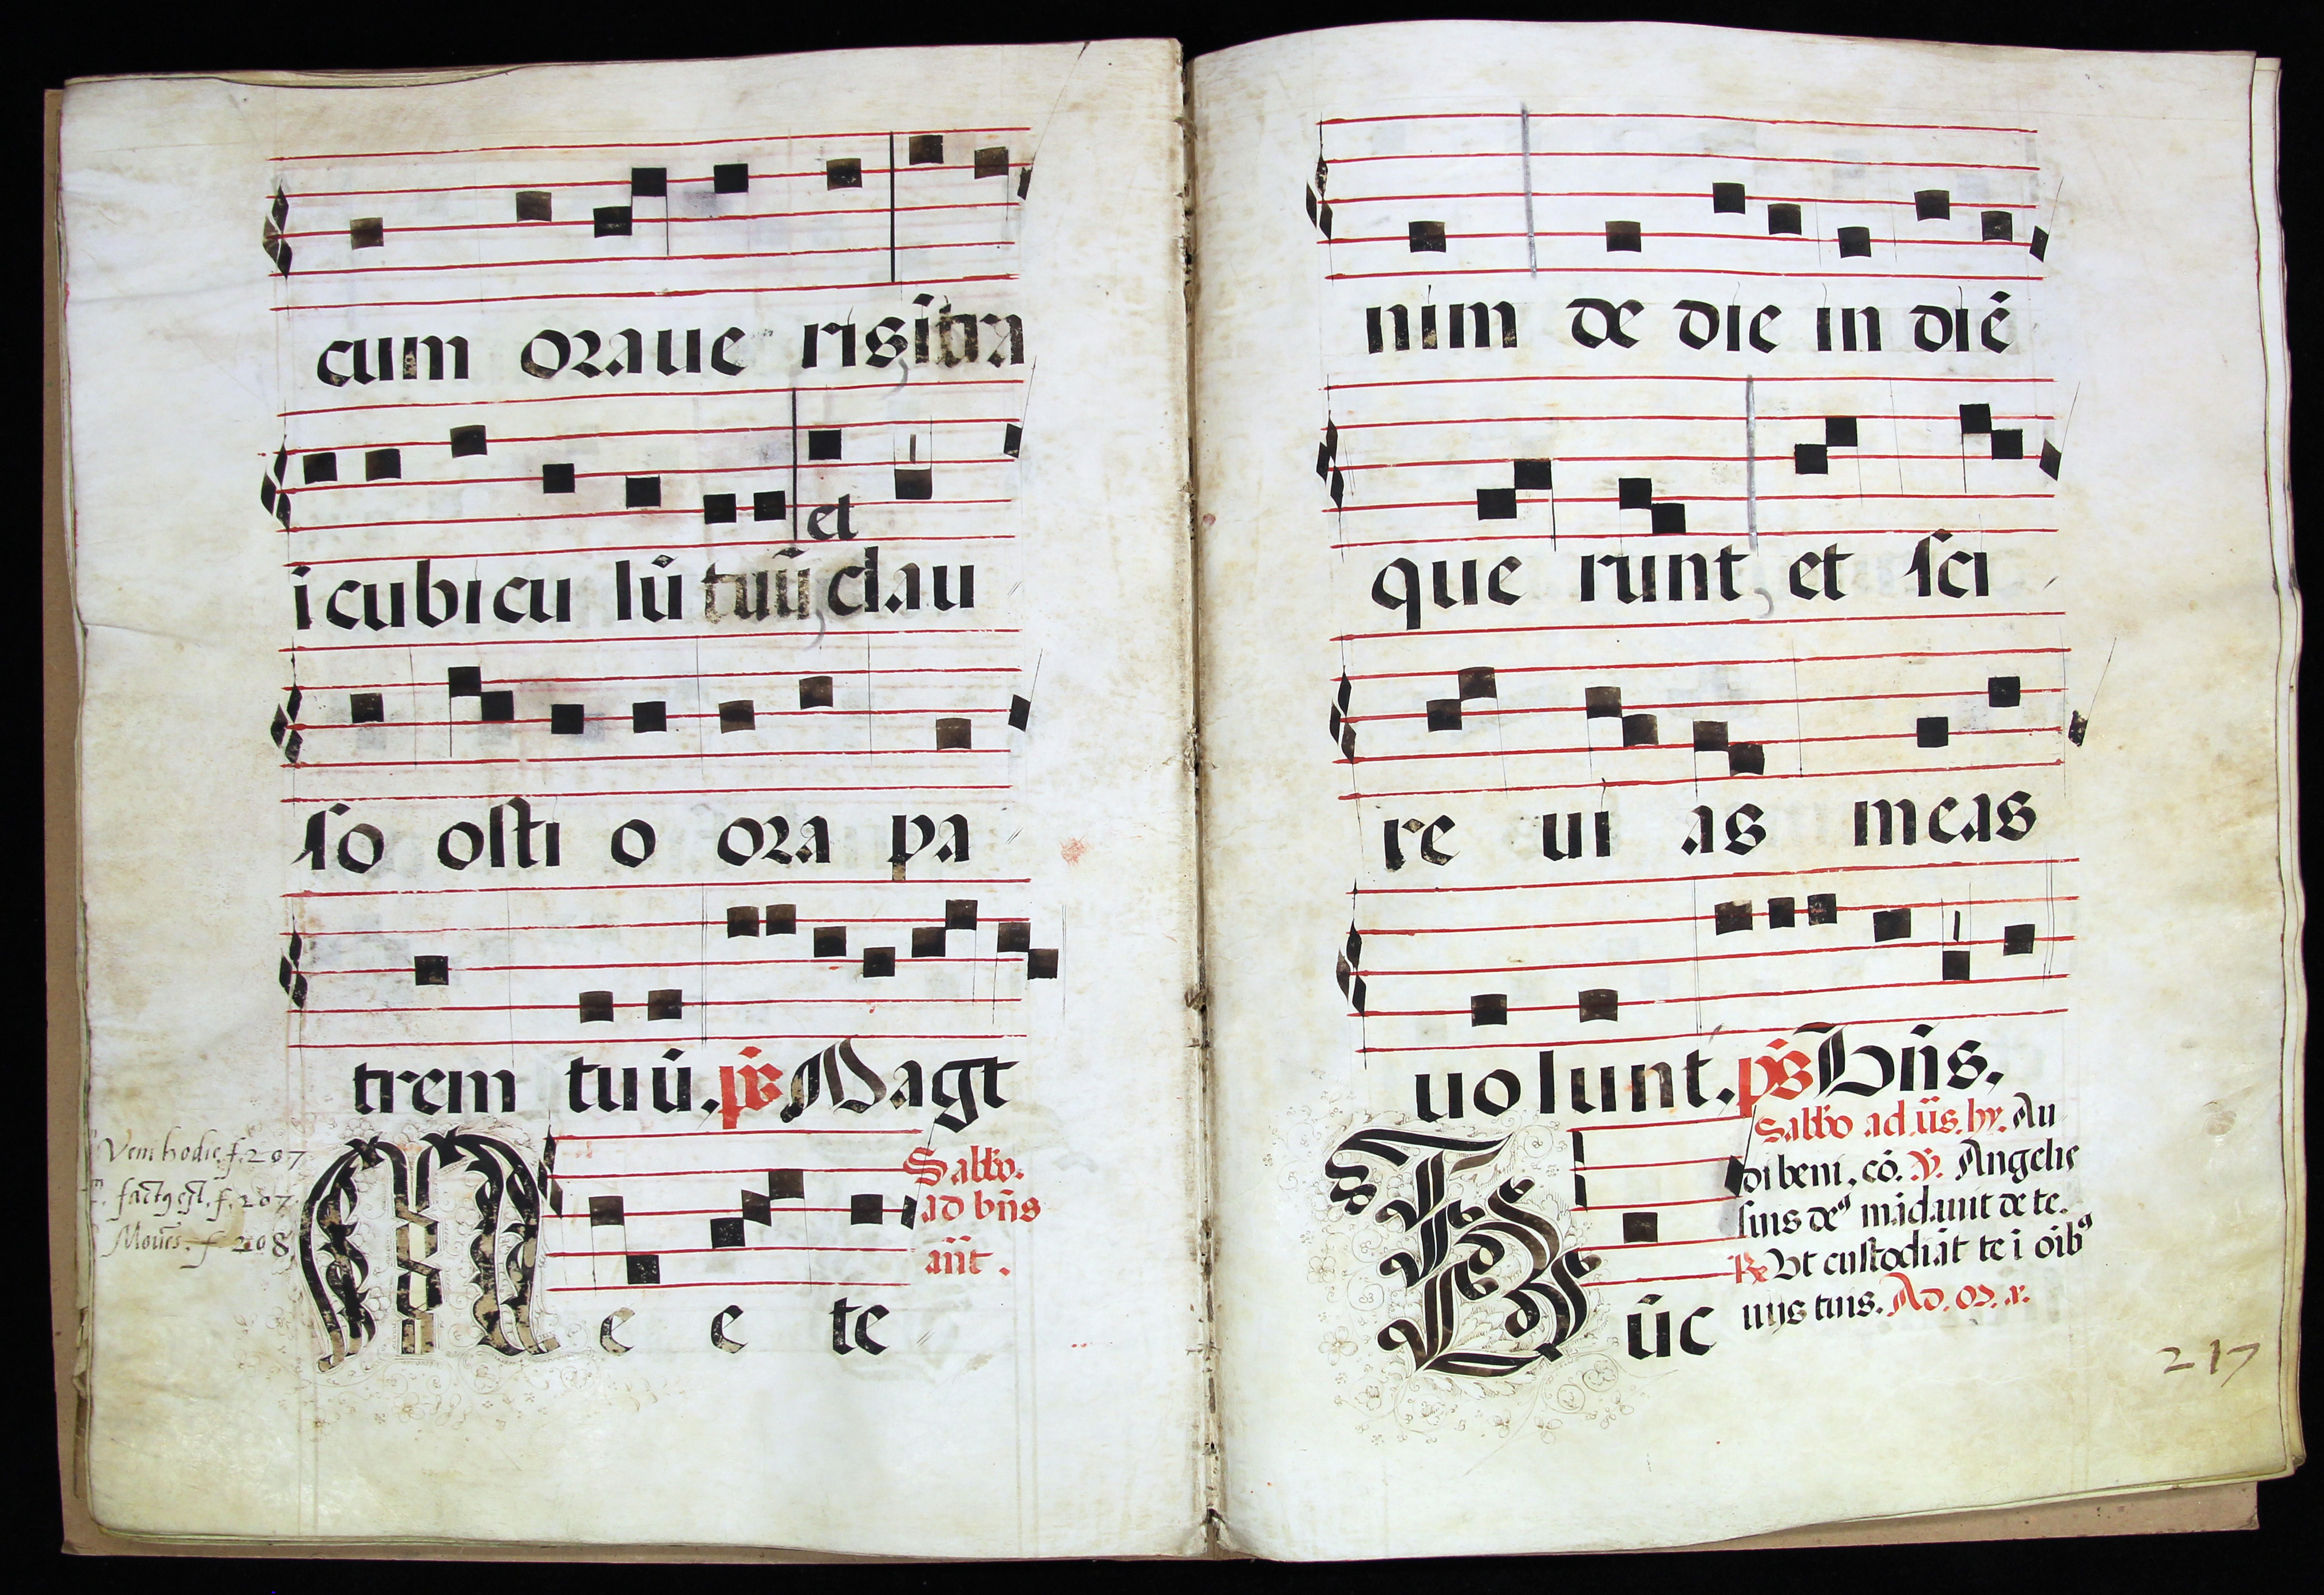 cum oraue ris, ĩtra
et
i cubicu lũ tuũ, clau
so osti o ora pa
trem tuũ. ps̃ Magt
Veni hodie. f. 207
factꝯ est. f. 207
Moyẽs. f 208
M e e te
Sabb̃o.
ad bñs
añt.
nim de die in diẽ
que runt, et sci
re ui as meas
uolunt. ps̃ Bñs.
Sabb̃o ad ũs. hy. Au
di beni. cõ. ℣. Angelis
suis deꝰ mãdauit de te.
℟ Vt custodiãt te ĩ oĩbꝰ
uijs tuis. Ad. or. r.
T ũc
217